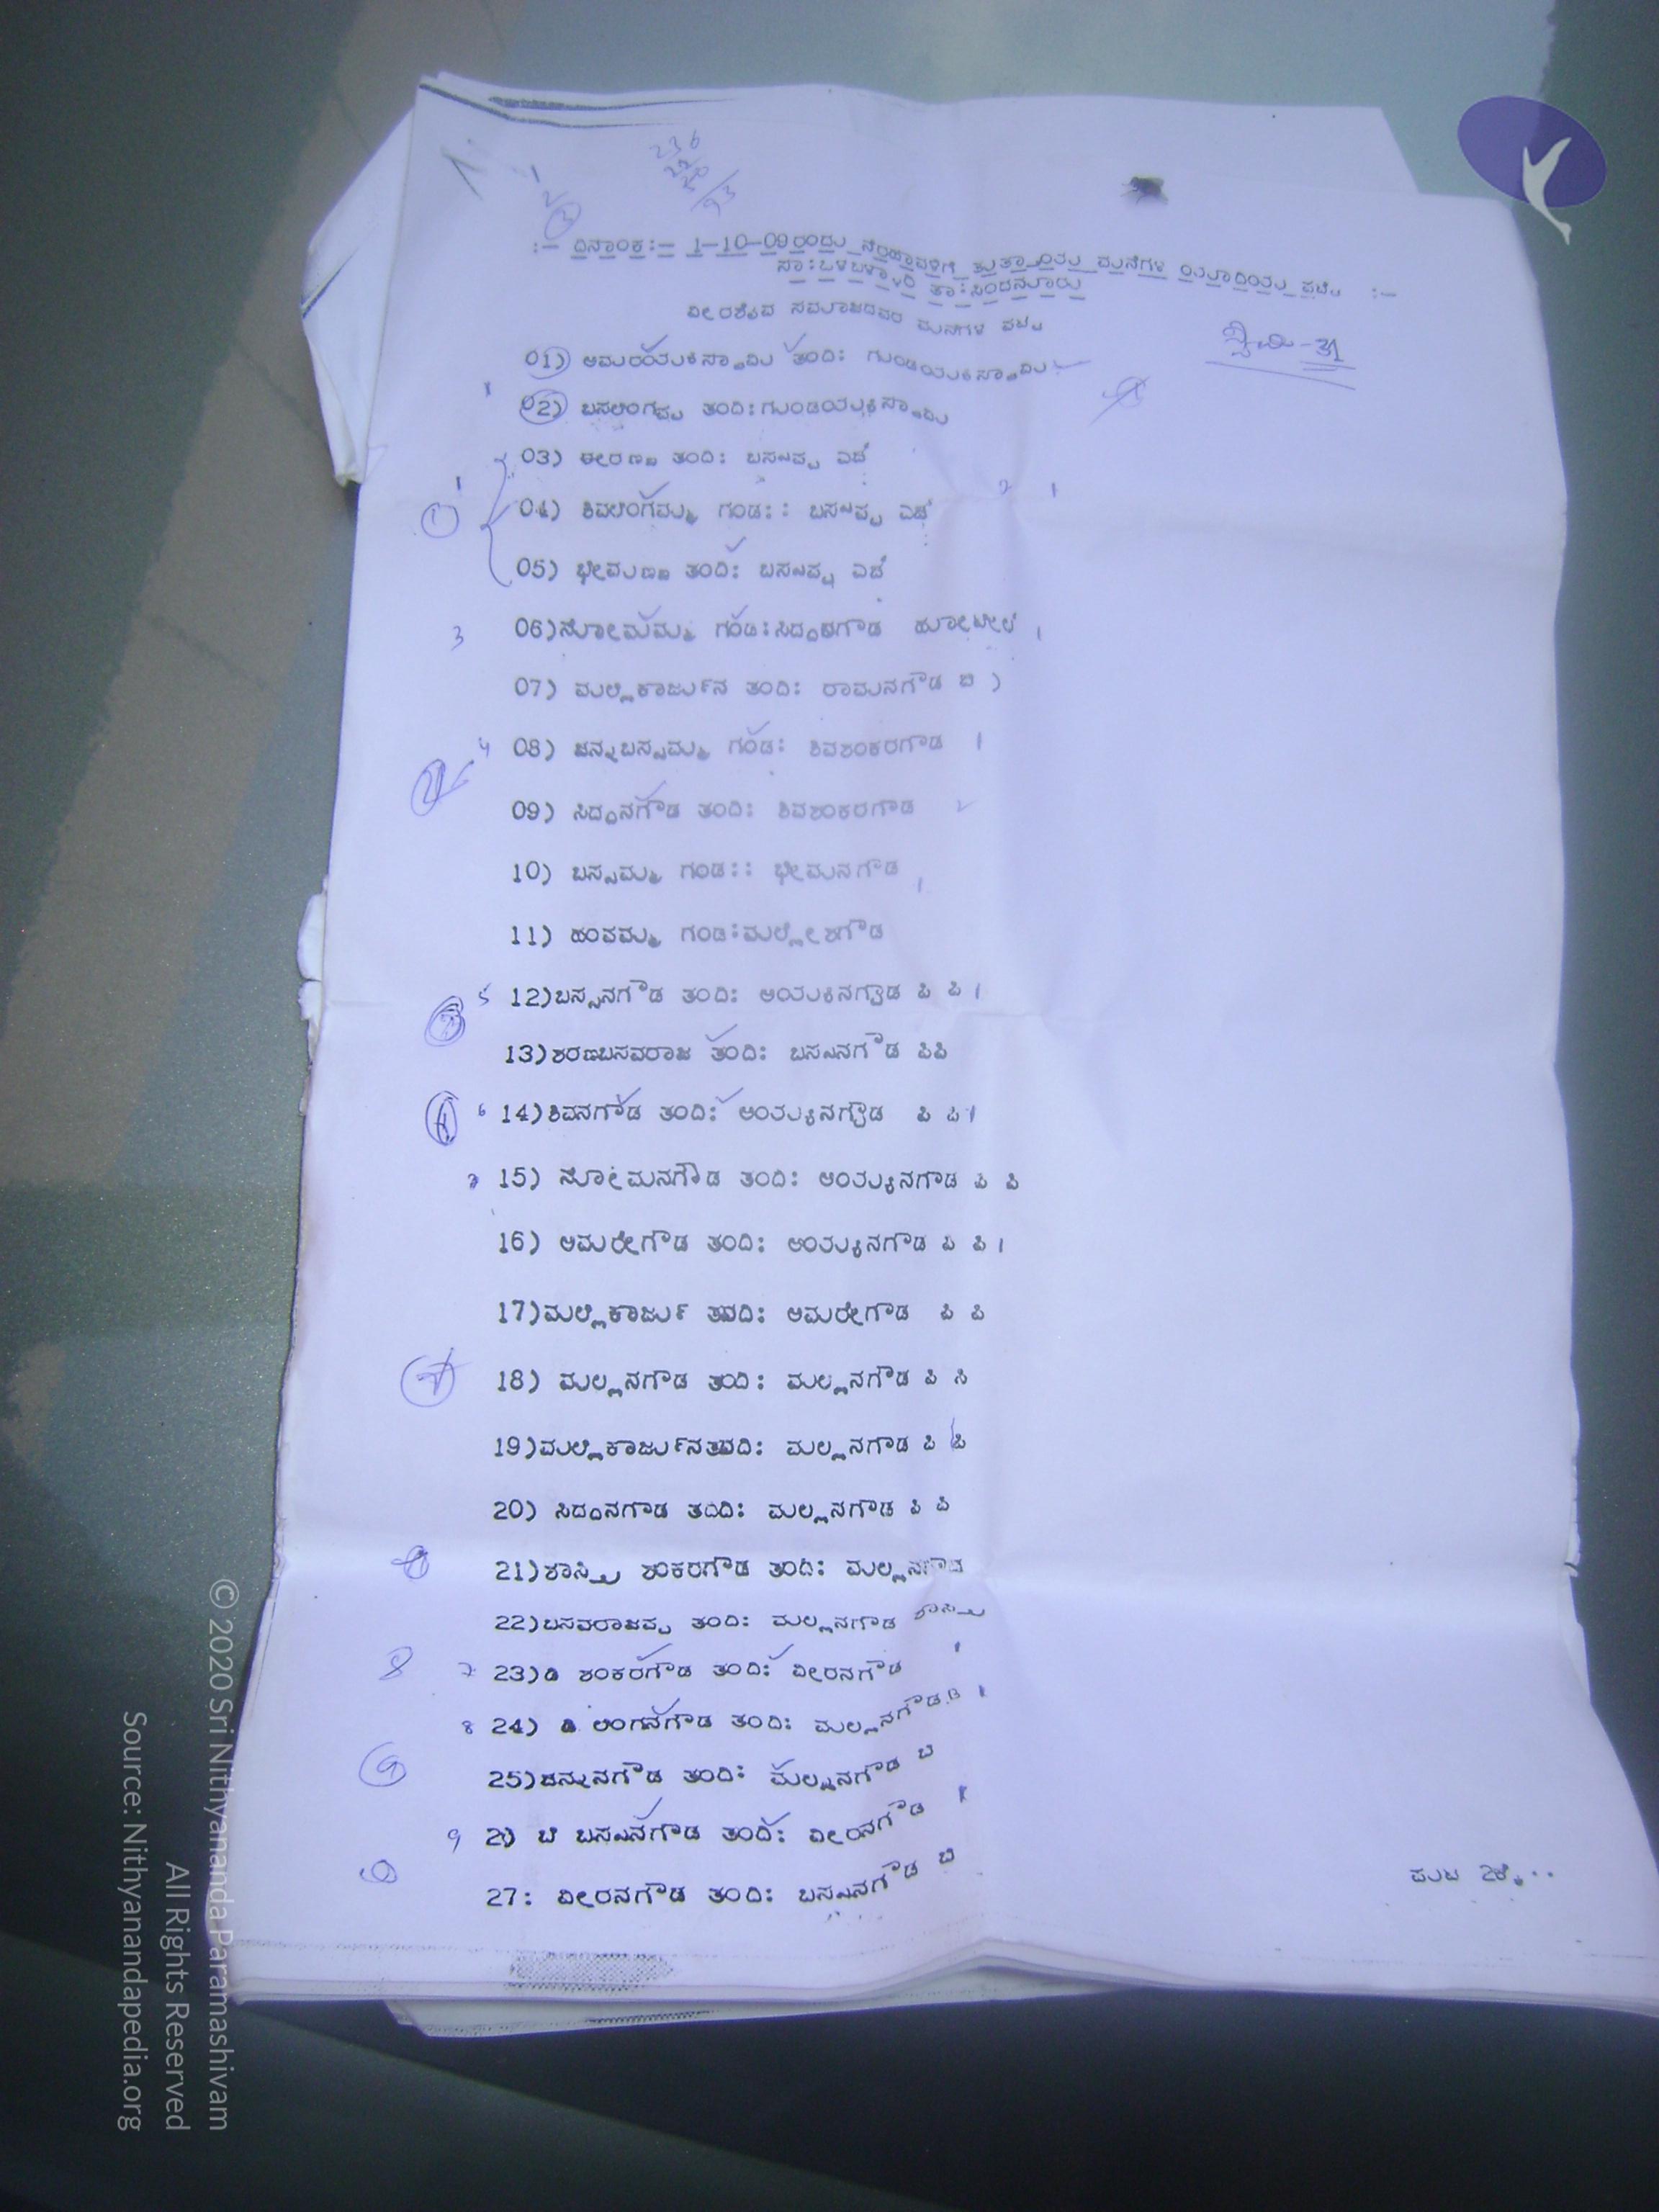 236
:- ದಿನಾಂಕ:- 1-10-09ರಂದು ನೆರಹಾವಳಿಗೆ ತುತ್ತಾಯಿತು ಮನೆಗಳ ಯಾದಿಯ ಪಟ್ಟಿ :-
ಸಾ:ಒಳಬಳ್ಳಾರಿ ತಾ:ಸಿಂದನೂರು
ವೀರಶೈವ ಸಮಾಜದವರ ಮನೆಗಳ ಪಟ್ಟಿ
01) ಅಮರಯ್ಯಸ್ವಾಮಿ ತಂದಿ: ಗುಂಡಯ್ಯಸ್ವಾಮಿ
02) ಬಸಲಿಂಗಪ್ಪ ತಂದಿ:ಗುಂಡಯ್ಯಸ್ವಾಮಿ
03) ಈರಣ್ಣ ತಂದಿ: ಬಸಪ್ಪ ಎಚ್
04) ಶಿವಲಿಂಗಮ್ಮ ಗಂಡ:: ಬಸಪ್ಪ ಎಚ್
05) ಭೀಮಣ್ಣ ತಂದಿ: ಬಸಪ್ಪ ಎಚ್
3 06)ಸೋಮಮ್ಮ ಗಂಡ:ಸಿದ್ದನಗೌಡ ಹೋಟೇಲ
07) ಮಲ್ಲಿಕಾರ್ಜುನ ತಂದಿ: ರಾಮನಗೌಡ ಬಿ )
4 08) ಚನ್ನಬಸ್ಸಮ್ಮ ಗಂಡ: ಶಿವಶಂಕರಗೌಡ
09) ಸಿದ್ದನಗೌಡ ತಂದಿ: ಶಿವಶಂಕರಗೌಡ
10) ಬಸ್ಸಮ್ಮ ಗಂಡ:: ಭೀಮನಗೌಡ
11) ಹಂಪಮ್ಮ ಗಂಡ:ಮಲ್ಲೇಶಗೌಡ
5 12)ಬಸ್ಸನಗೌಡ ತಂದಿ: ಅಯ್ಯನಗೌಡ ಪಿ ಪಿ
13)ಶರಣಬಸವರಾಜ ತಂದಿ: ಬಸನಗೌಡ ಪಿಪಿ
6 14)ಶಿವನಗೌಡ ತಂದಿ: ಅಯ್ಯನಗೌಡ ಪಿ ಪಿ
7 15) ಸೋಮನಗೌಡ ತಂದಿ: ಅಯ್ಯನಗೌಡ ಪಿ ಪಿ
16) ಅಮರೇಗೌಡ ತಂದಿ: ಅಯ್ಯನಗೌಡ ಪಿ ಪಿ
17)ಮಲ್ಲಿಕಾರ್ಜು ತಂದಿ: ಅಮರೇಗೌಡ ಪಿ ಪಿ
18) ಮಲ್ಲನಗೌಡ ತಂದಿ: ಮಲ್ಲನಗೌಡ ಪಿ ಸಿ
19)ಮಲ್ಲಿಕಾರ್ಜುನತಂದಿ: ಮಲ್ಲನಗೌಡ ಪಿ ಪಿ
20) ಸಿದ್ದನಗೌಡ ತಂದಿ: ಮಲ್ಲನಗೌಡ ಪಿ ಪಿ
21)ಶಾಸ್ತ್ರಿ ಶಂಕರಗೌಡ ತಂದಿ: ಮಲ್ಲನಗೌಡ
22)ಬಸವರಾಜಪ್ಪ ತಂದಿ: ಮಲ್ಲನಗೌಡ ಶಾಸ್ತ್ರಿ
8 7 23)ಡಿ ಶಂಕರಗೌಡ ತಂದಿ: ವೀರನಗೌಡ
8 24) ಡಿ ಲಿಂಗನಗೌಡ ತಂದಿ: ಮಲ್ಲನಗೌಡ.ಡಿ
9 25)ಚನ್ನನಗೌಡ ತಂದಿ: ಮಲ್ಲನಗೌಡ ಬಿ
9 26) ಬಿ ಬಸನಗೌಡ ತಂದಿ: ವೀರನಗೌಡ
27: ವೀರನಗೌಡ ತಂದಿ: ಬಸನಗೌಡ ಬಿ
ಪುಟ 2ಕ್ಕೆ..
© 2020 Sri Nithyananda Paramashivam
All Rights Reserved
Source: Nithyanandapedia.org